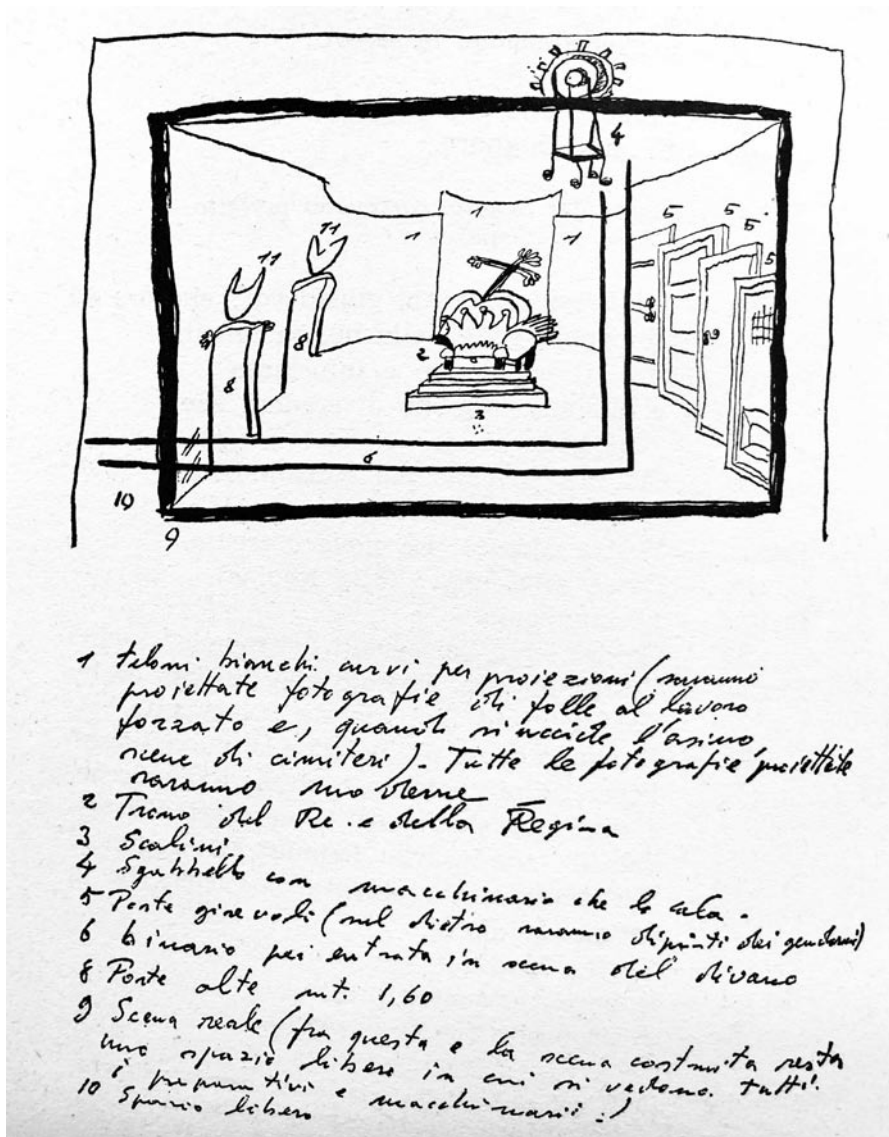 4
5
5
1
5
11
1
1
5
11
8
2
8
3
6
10
9
1 Teloni bianchi curvi per proiezioni (saranno
proiettate fotografie di folle al lavoro
forzato e, quando si uccide l'asino,
scene di cimiteri). Tutte le fotografie proiettate
saranno moderne
2 Trono del Re e della Regina
3 Scalini
4 Sgabello con macchinario che lo cala.
5 Porte girevoli (sul dietro saranno dipinti dei gendarmi)
6 binario per entrata in scena del divano
8 Porte alte mt. 1,60
9 Scena reale (fra questa e la scena costruita resta
uno spazio libero in cui si vedono tutti
i preparativi e macchinarii.)
10 Spazio libero